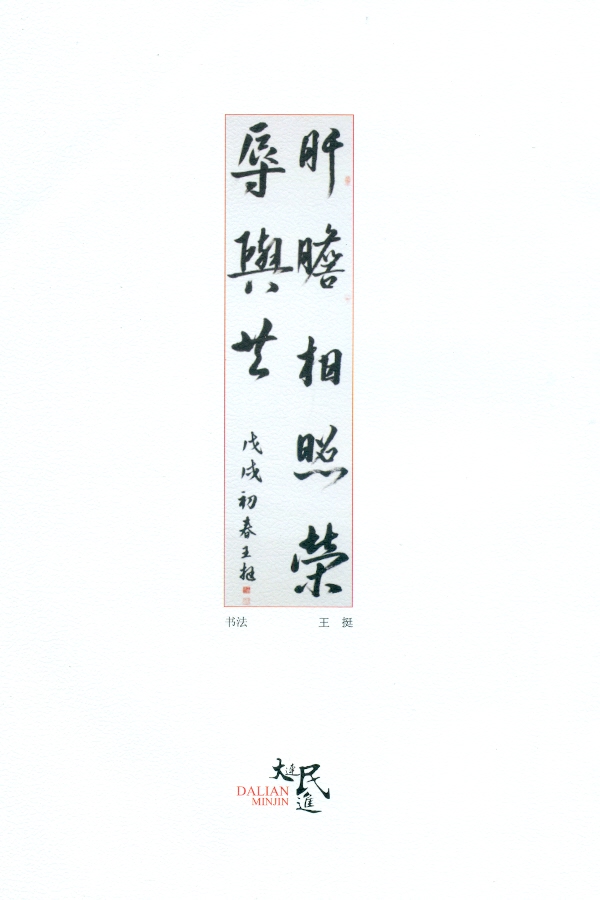 肝膽相照榮
辱與共
戊戌初春王挺
书法 王 挺
大连民進
DALIAN
MINJIN